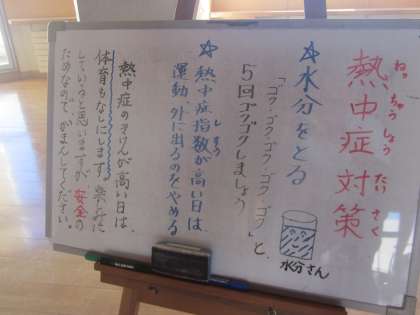 熱中症対策
ねっ ちゅう しょう たい さく
☆水分をとる
「ゴク・ゴク・ゴク・ゴク・ゴク」と、
5回ゴクゴクしましょう
水分さん
☆熱中症指数が高い日は、
しすう
運動、外に出るのをやめる
熱中症のきけんが高い日は、
体育もなしにします。楽しみに
していると思いますが、安全の
ためなので、がまんしてください。